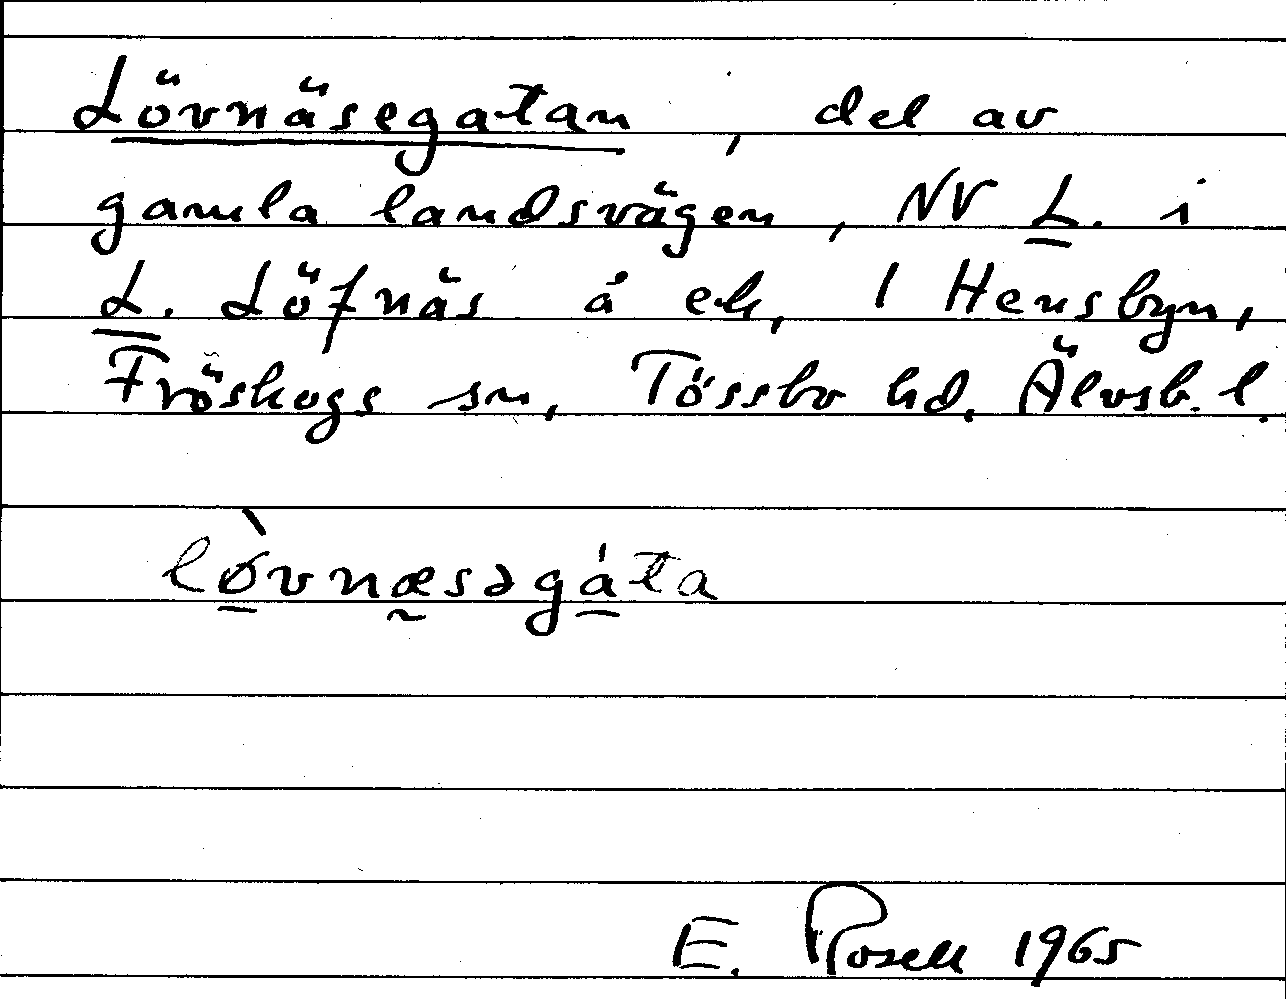 Lövnäsegatan, del av
gamla landsvägen, NV L. i
L. Löfnäs å ek, 1 Hensbyn,
Fröskogs sn, Tössbo hd. Älvsb. l.
lòvnæsəgáta
E. Rosell 1965